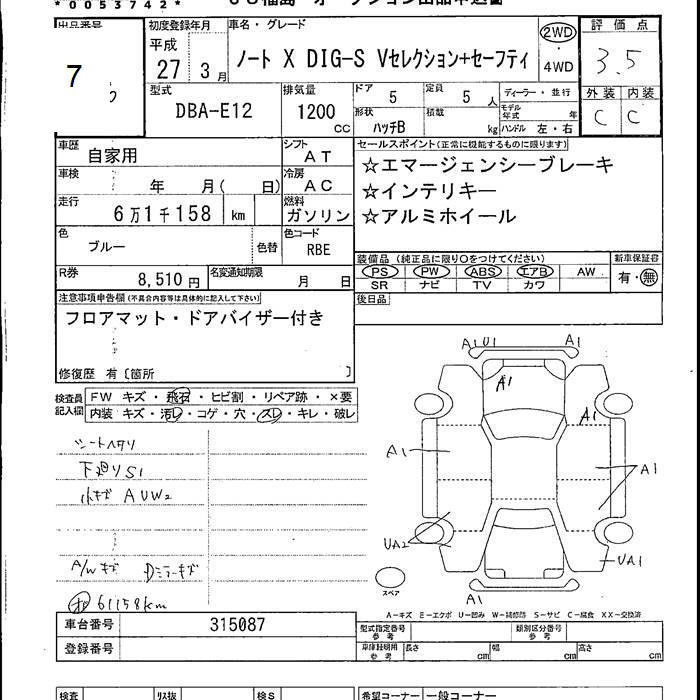 *0053742*
出品番号
初度登録年月
車名・グレード
評価点
7
平成
27 3月
ノート X DIG-S Vセレクション+セーフティ
2WD
4WD
3.5
型式
DBA-E12
排気量
1200
cc
ドア
5
定員
5 人
ディーラー・並行
モデル年式 年
外装 内装
形状
ハッチB
積載
kg
ハンドル 左・右
C C
車歴
自家用
シフト
AT
セールスポイント(正常に機能するものに限ります)
☆エマージェンシーブレーキ
☆インテリキー
☆アルミホイール
車検
年 月( 日)
冷房
AC
走行
6万1千158 km
燃料
ガソリン
色
ブルー
色替
色コード
RBE
装備品(純正品に限り○をつけてください)
新車保証書
PS PW ABS エアB AW
SR ナビ TV カワ
有・無
R券
8,510円
名変通知期限
月 日
後日品
注意事項申告欄(不具合内容等は具体的に記入して下さい)
フロアマット・ドアバイザー付き
修復歴 有〔箇所 〕
検査員記入欄
FW キズ・飛石・ヒビ割・リペア跡・×要
内装 キズ・汚レ・コゲ・穴・スレ・キレ・破レ
シートヘタリ
下廻りS1
小キズ AUW2
A/Wキズ Dミラーキズ
61158km
A1U1
A1
A1
A1
A1
A1
UA2
UA1
A1
スペア
A-キズ E-エクボ U-凹み W-補修跡 S-サビ C-腐食 XX-交換済
車台番号
315087
型式指定番号
参考
類別区分番号
参考
登録番号
車庫証明用
参考
長さ cm
幅 cm
高さ cm
検査
リス抜
検S
希望コーナー
一般コーナー